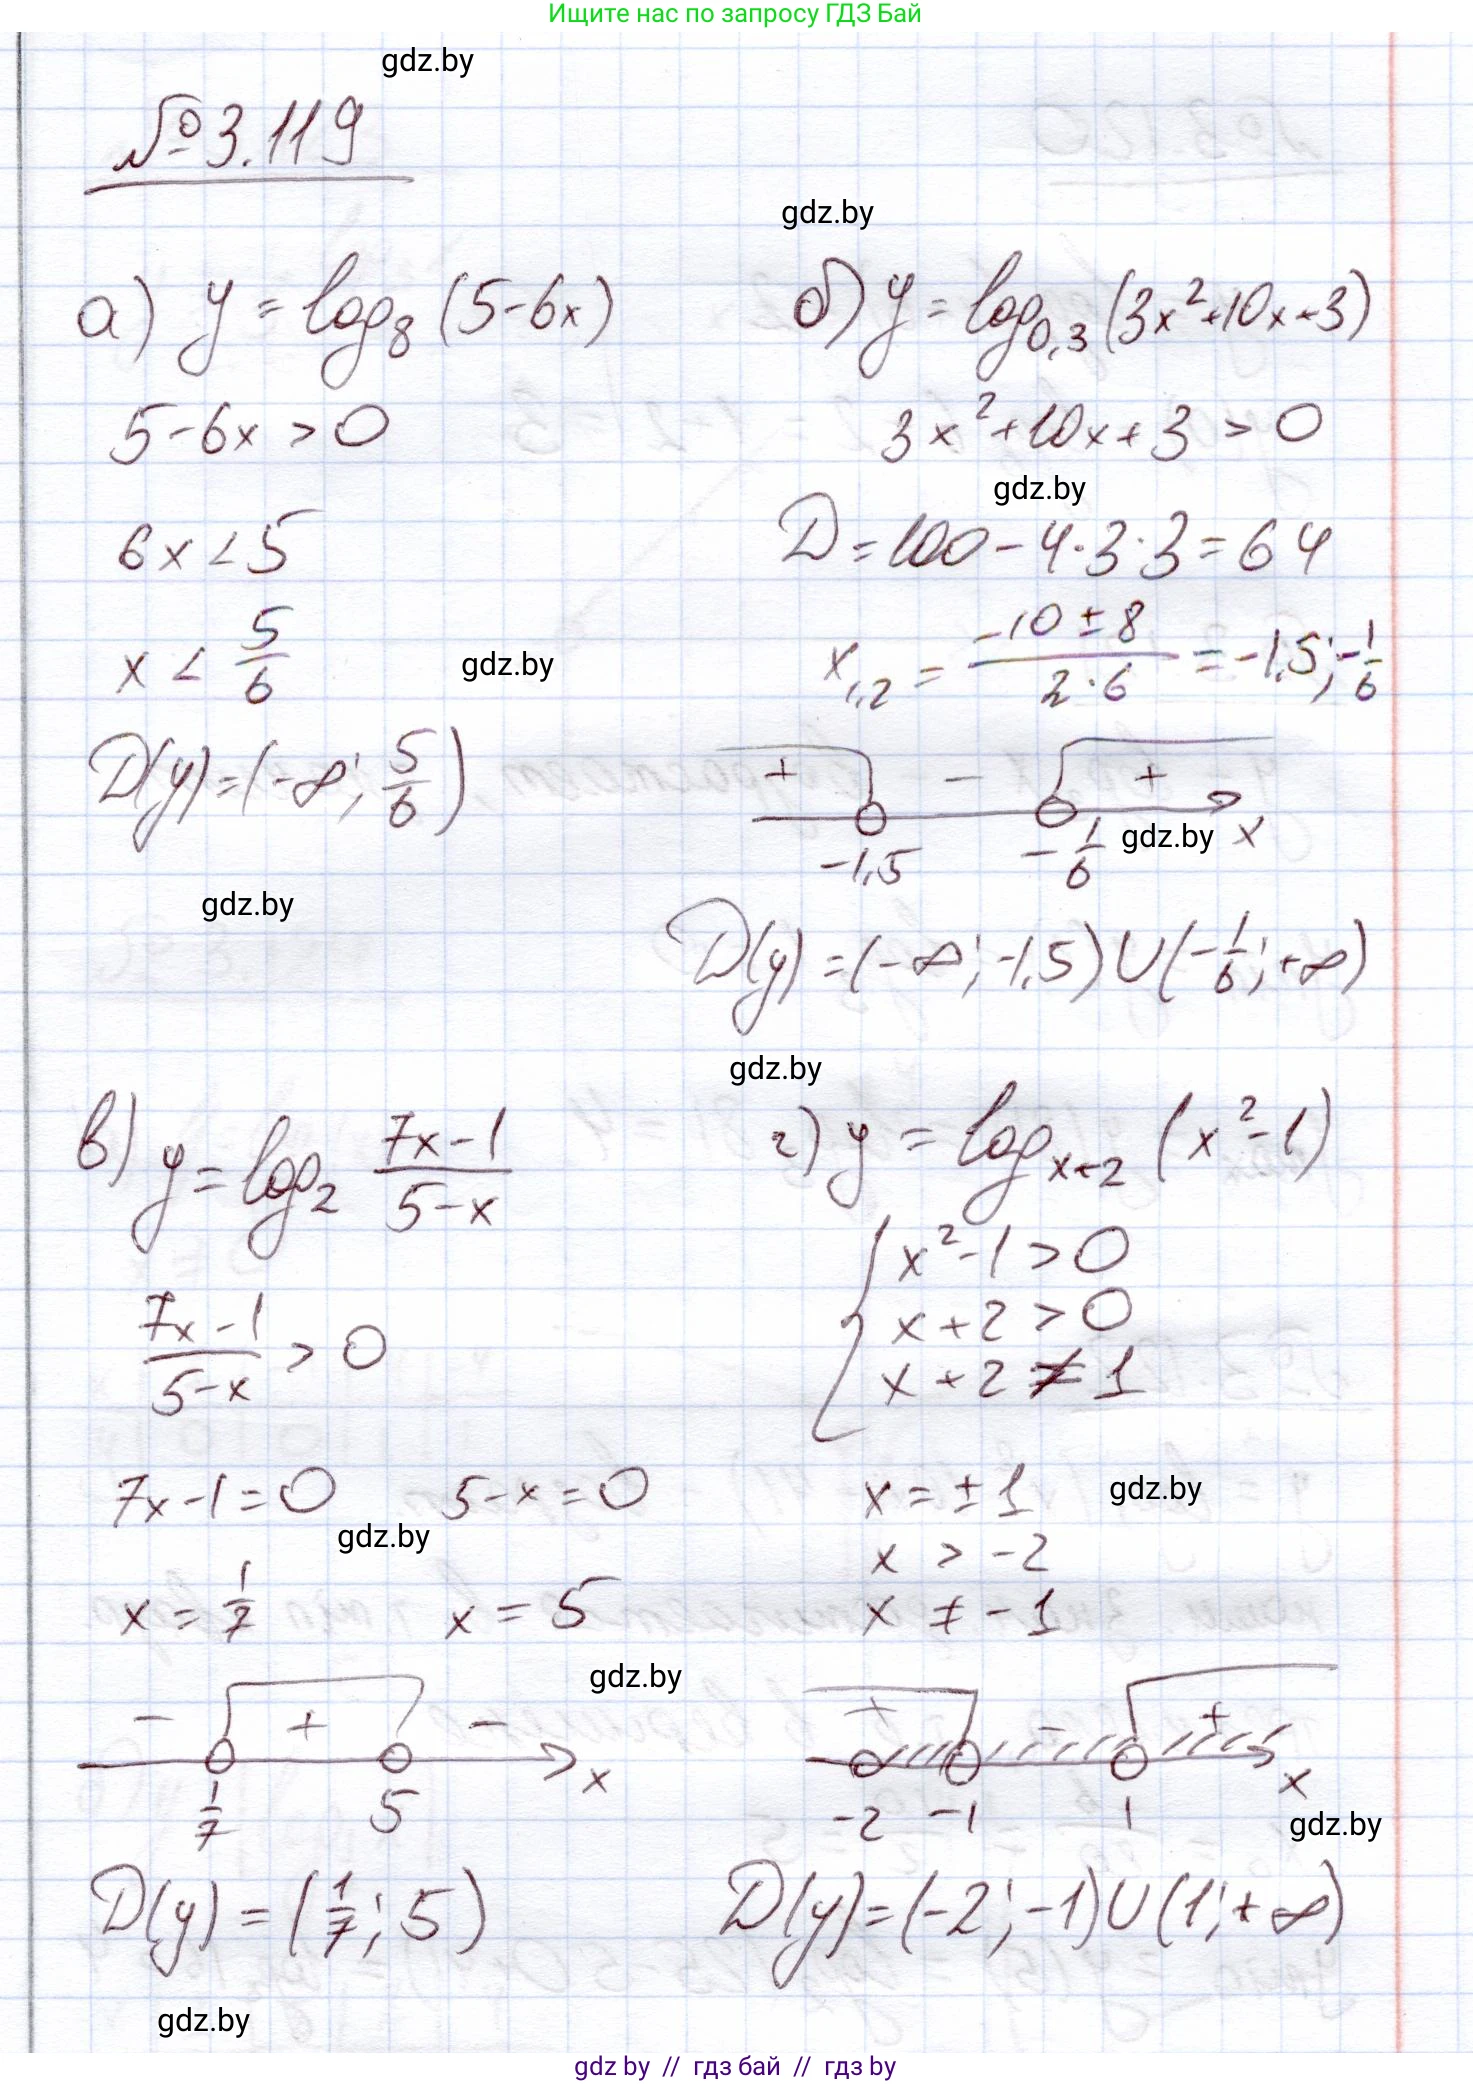 Ищите нас по запросу ГДЗ Бай
gdz.by
№ 3.119
gdz.by
а) y = log₈ (5-6x)
5-6x > 0
6x < 5
x < 5/6
gdz.by
D(y) = (-∞; 5/6)
gdz.by
б) y = log₀,₃ (3x²+10x+3)
3x²+10x+3 > 0
gdz.by
D = 100 - 4·3·3 = 64
x₁,₂ = (-10 ± 8)/(2·6) = -1,5; -1/6
+ - +
-1,5 -1/6 gdz.by x
D(y) = (-∞; -1,5) ∪ (-1/6; +∞)
gdz.by
в) y = log₂ (7x-1)/(5-x)
(7x-1)/(5-x) > 0
7x-1=0 5-x=0
gdz.by
x = 1/7 x = 5
gdz.by
- + -
1/7 5 x
D(y) = (1/7; 5)
gdz.by
г) y = log ₓ₊₂ (x²-1)
{ x²-1 > 0
x+2 > 0
x+2 ≠ 1
x = ±1
gdz.by
x > -2
x ≠ -1
+ - +
-2 -1 1 x
gdz.by
D(y) = (-2; -1) ∪ (1; +∞)
gdz by // гдз бай // гдз by